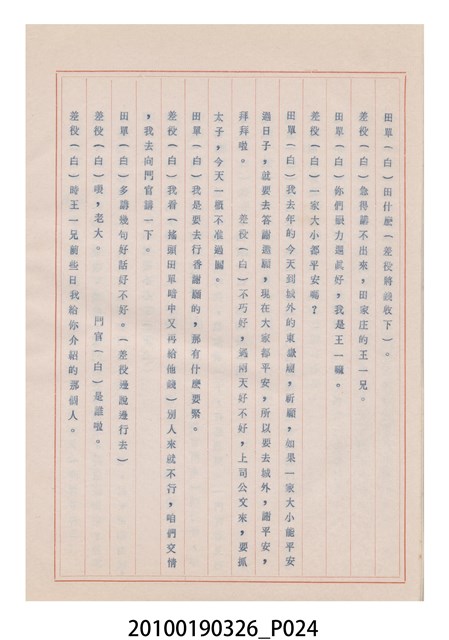 田單(白)田什麽(差役將錢收下)。
差役(白)急得講不出來,田家庄的王一兄。
田單(白)你們眼力還眞好,我是王一礮。
差役(白)一家大小都平安嗎?
田單(白)我去年的今天到城外的東嶽廟,祈願,如果一家大小能平安
過日子,就要去答謝進願,現在大家都平安,所以要去城外,謝平安,
拜拜啦。 差役(白)不巧好,過兩天好不好,上司公文來,要抓
太子,今天一概不准過關。
田單(白)我是要去行香謝願的,那有什麽要緊。
差役(白)我看(搖頭田單暗中又再給他錢)別人來就不行,咱們交情
,我去向門官講一下。
田單(白)多講幾句好話好不好。(差役邊說邊行去)
差役(白)喂,老大。 門官(白)是誰啦。
差役(白)時王一兄前些日我給你介紹的那個人。
20100190326_P024